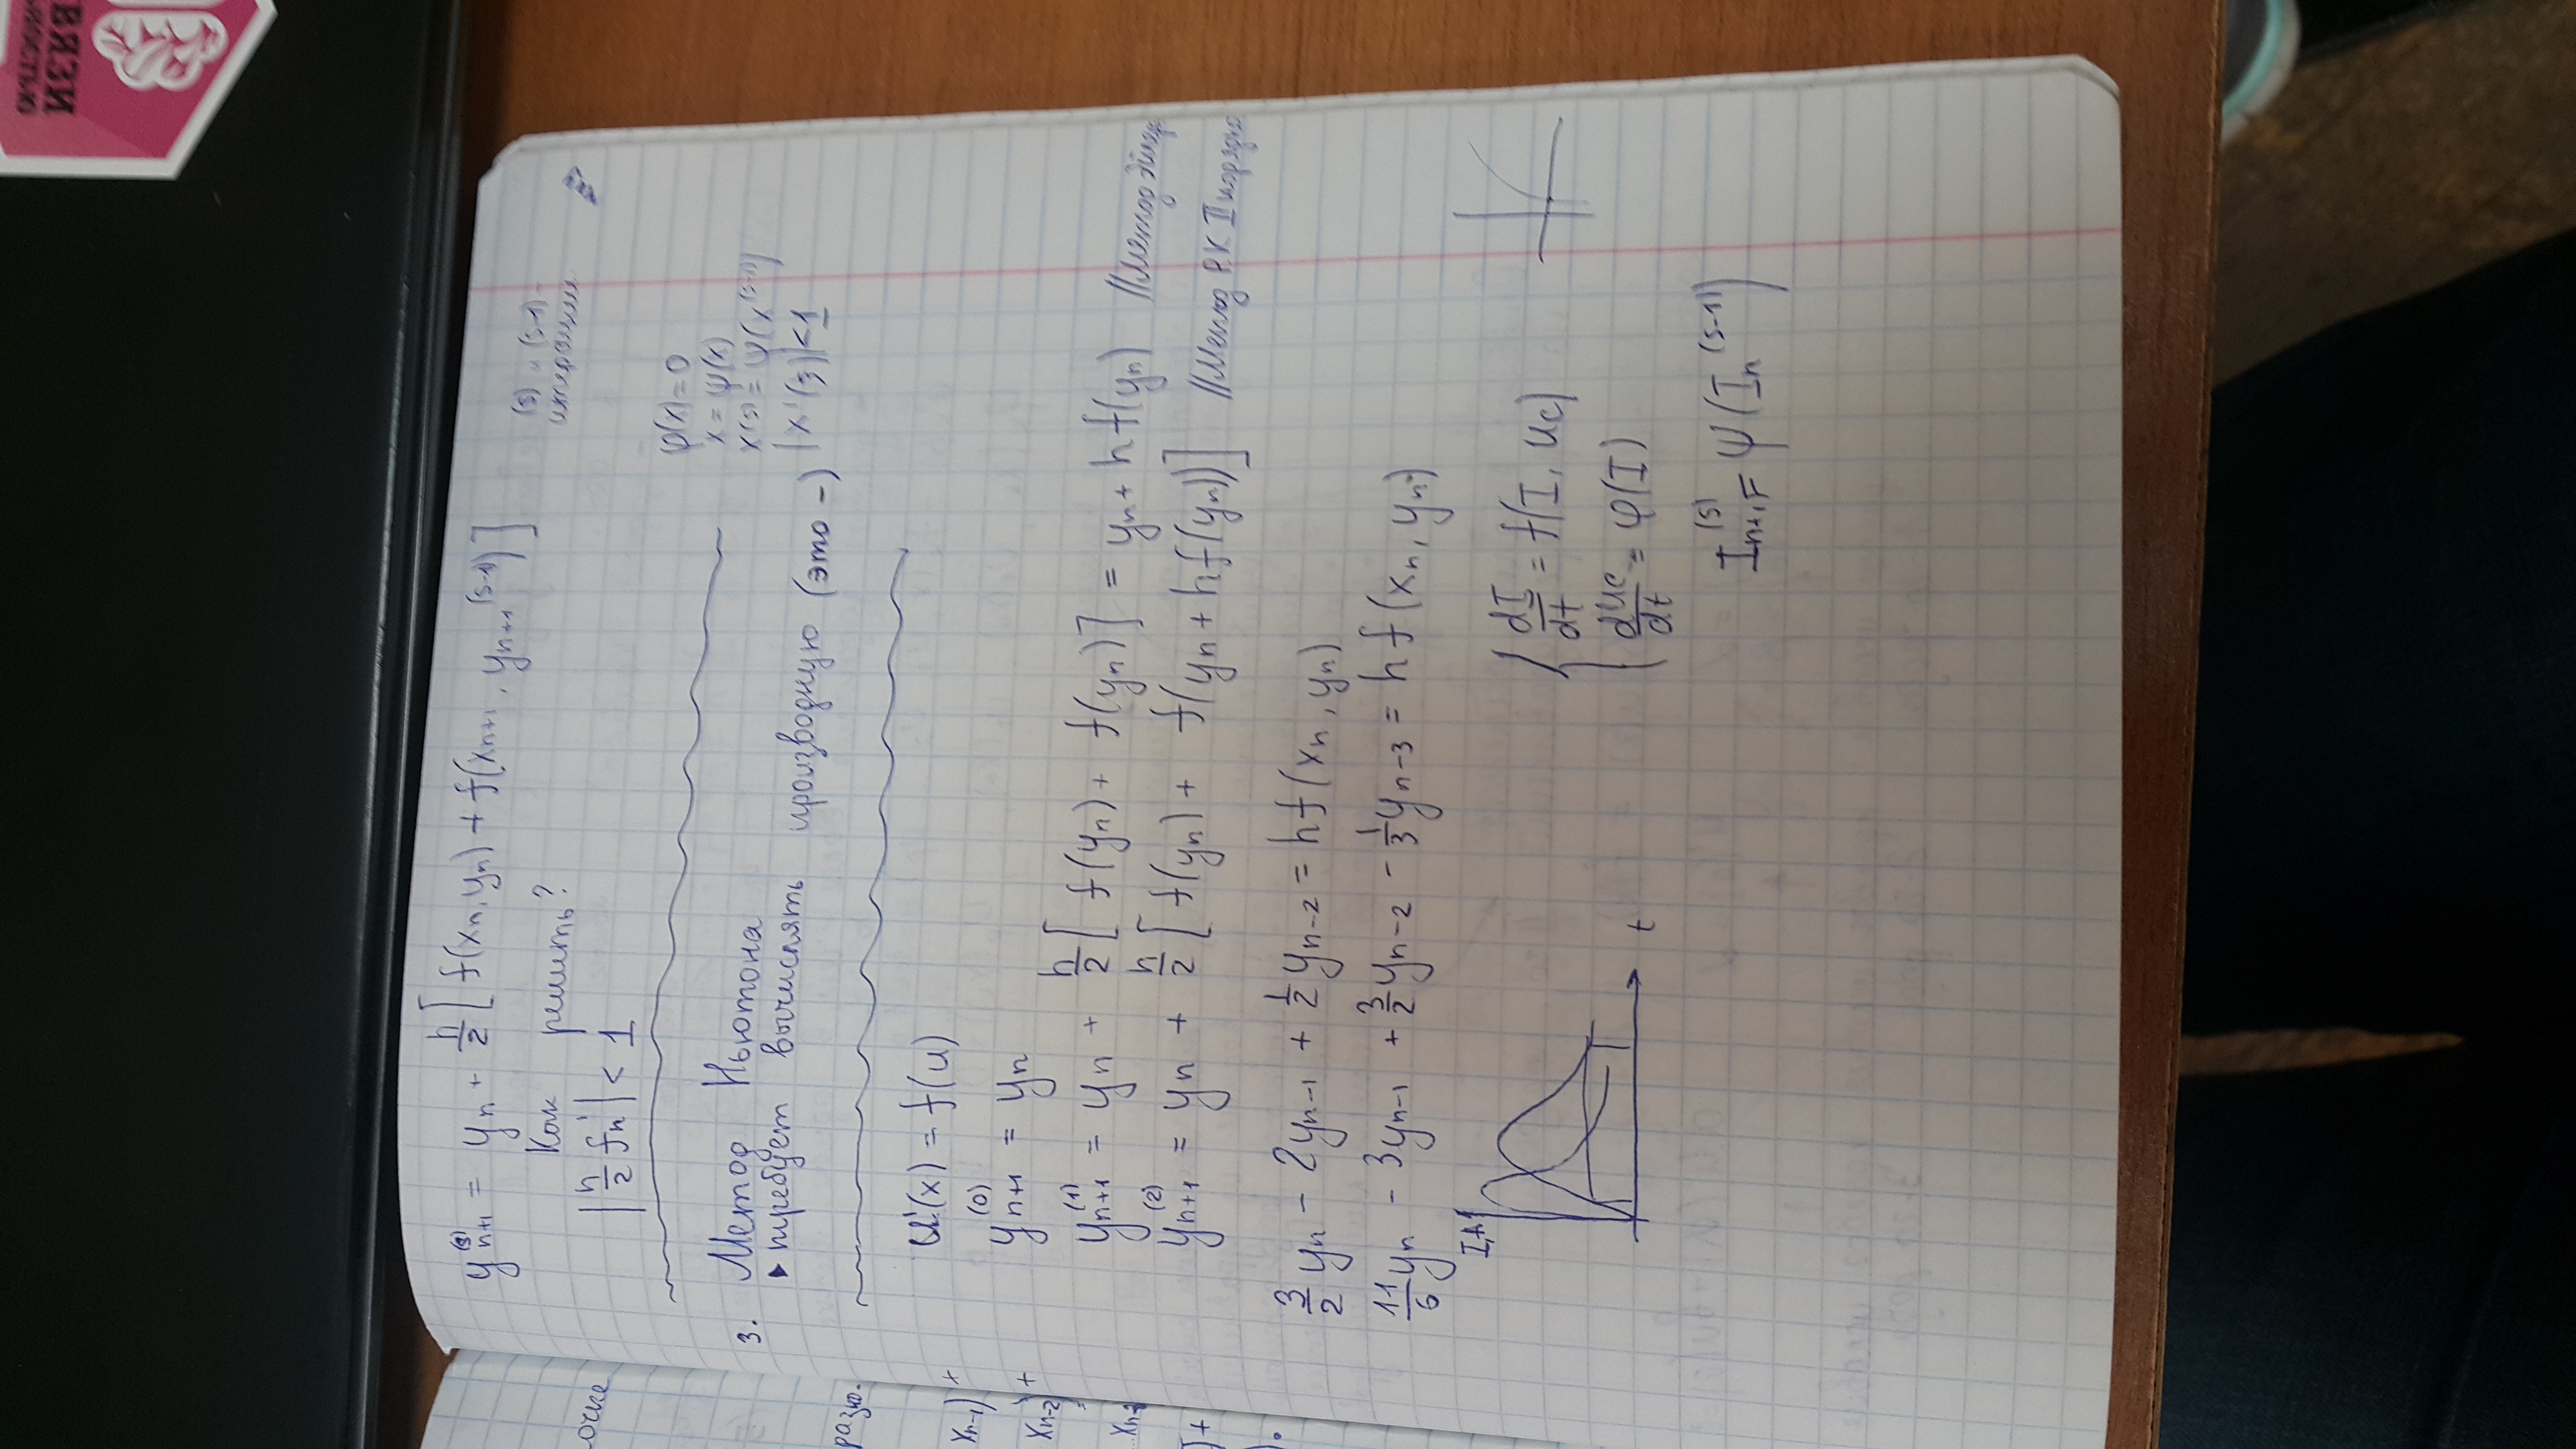 y_{n+1}^{(s)} = y_n + h/2 [ f(x_n, y_n) + f(x_{n+1}, y_{n+1}^{(s-1)}) ]
(s) и (s-1) -
итерации
Как решить?
|h/2 f'_n| < 1
φ(x) = 0
x = ψ(x)
x^{(s)} = ψ(x^{(s-1)})
3. Метод Ньютона
требует вычислять производную (это -)
|x'(ξ)| < 1
u'(x) = f(u)
y_{n+1}^{(0)} = y_n
y_{n+1}^{(1)} = y_n + h/2 [ f(y_n) + f(y_n) ] = y_n + h f(y_n) // Метод Эйлера
y_{n+1}^{(2)} = y_n + h/2 [ f(y_n) + f(y_n + h f(y_n)) ] // Метод РК II порядка
3/2 y_n - 2y_{n-1} + 1/2 y_{n-2} = h f(x_n, y_n)
11/6 y_n - 3y_{n-1} + 3/2 y_{n-2} - 1/3 y_{n-3} = h f(x_n, y_n)
I, A
t
dI/dt = f(I, u_c)
du_c/dt = φ(I)
I_{n+1}^{(s)} = ψ(I_n^{(s-1)})
очие
разио.
x_{n-1}) +
x_{n-2}) +
ВЯЗИ
НОСТЬЮ